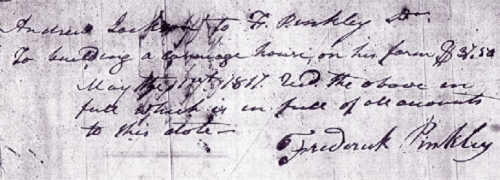 Andrew Jackson to F. Pinkley Dr
To building a carriage house, on his farm $37.50
May the 1817. Recd. the above in
full which is in full of all accounts
to this date—
Frederick Pinkley